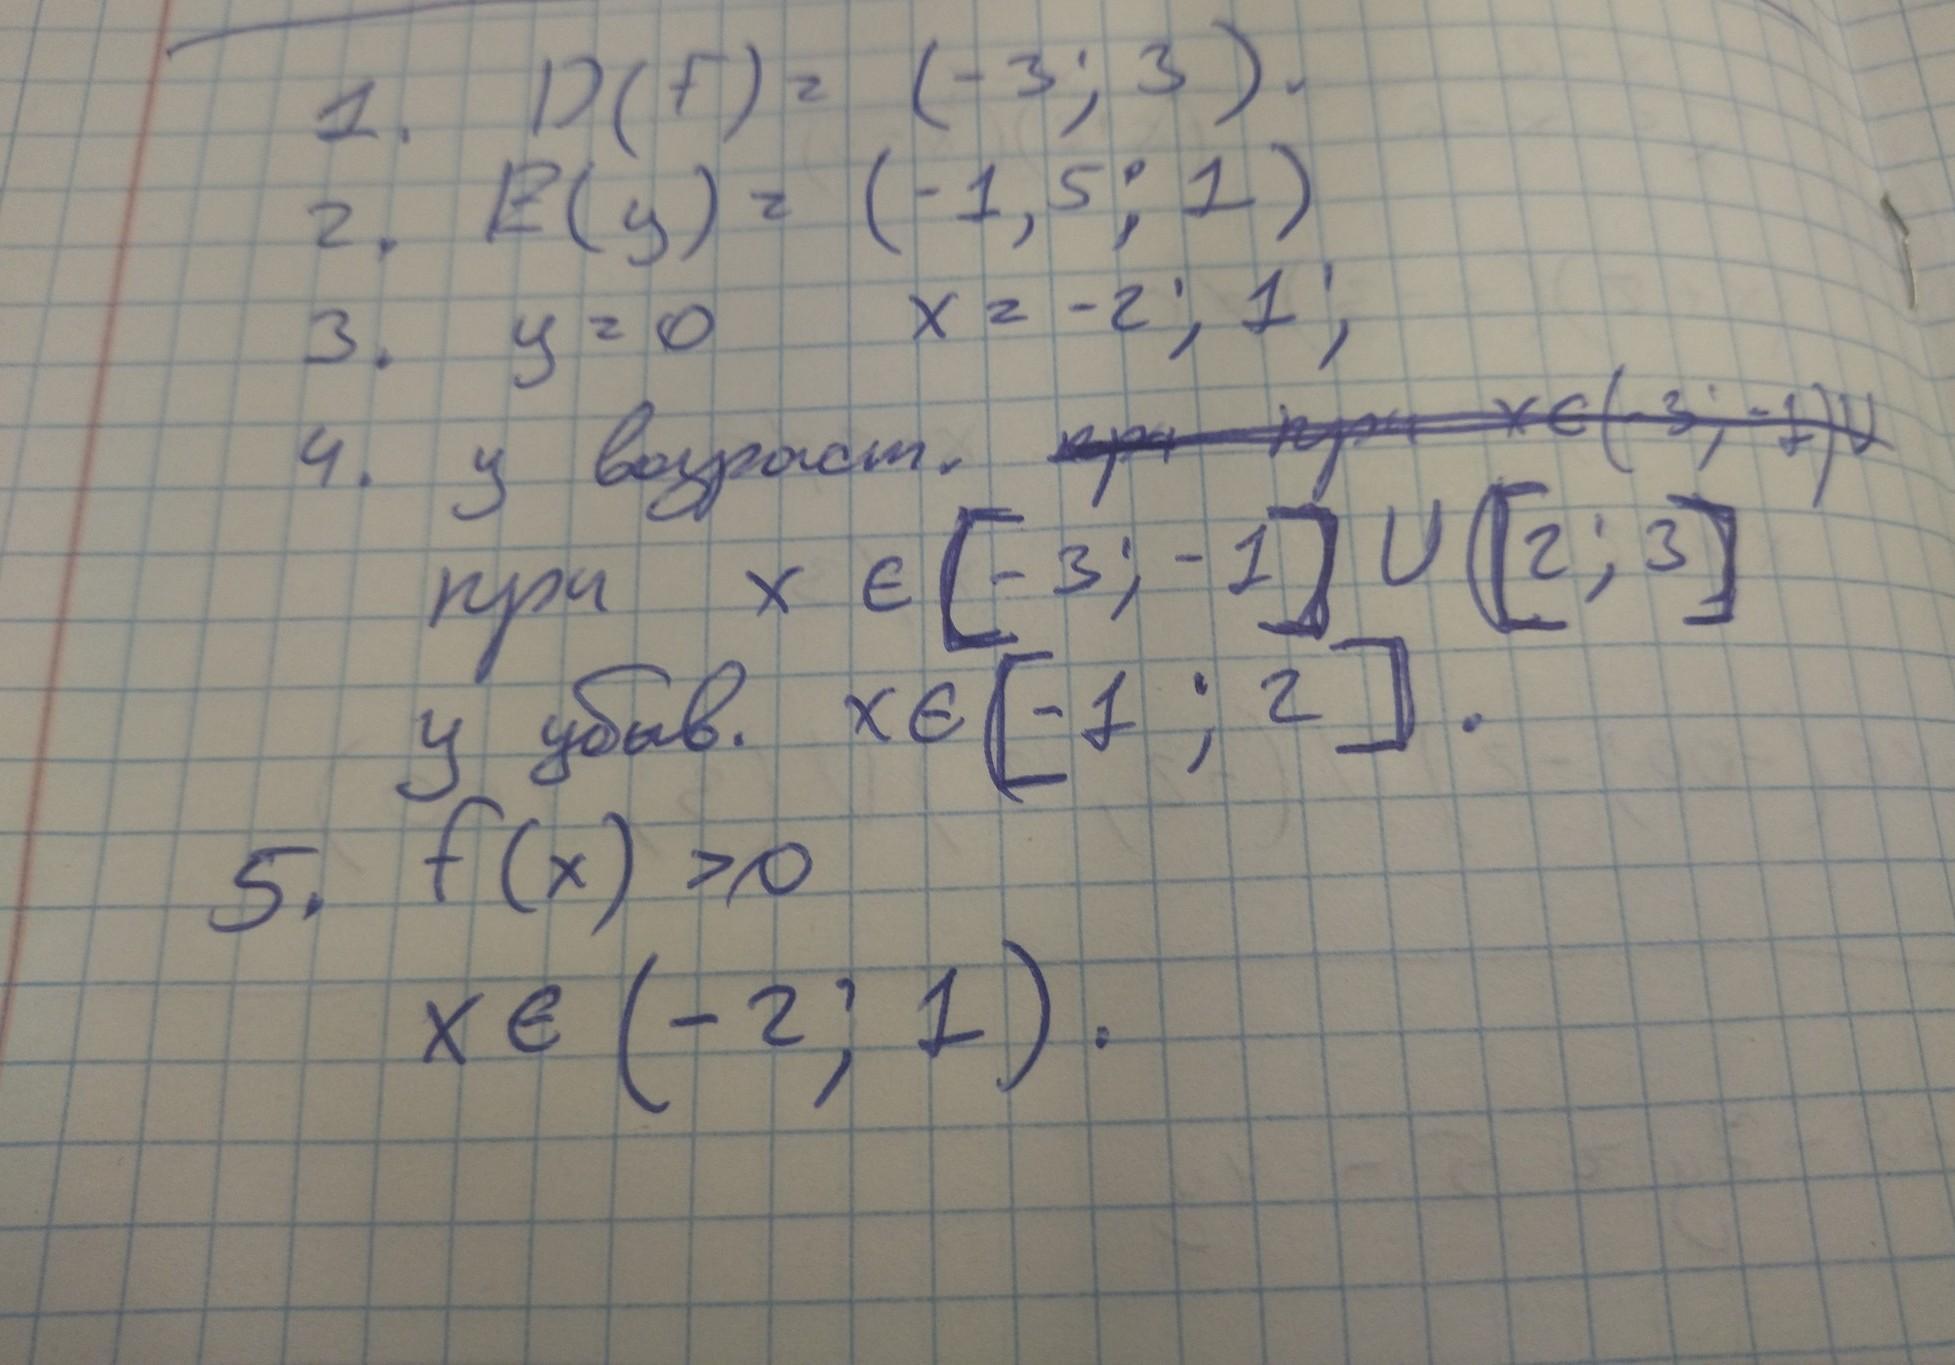 1. D(f) = (-3; 3).
2. E(y) = (-1,5; 1)
3. y = 0 x = -2; 1;
4. y возраст. при при x ∈ (-3; -1) ∪
при x ∈ [-3; -1] ∪ [2; 3]
y убыв. x ∈ [-1; 2].
5. f(x) > 0
x ∈ (-2; 1).